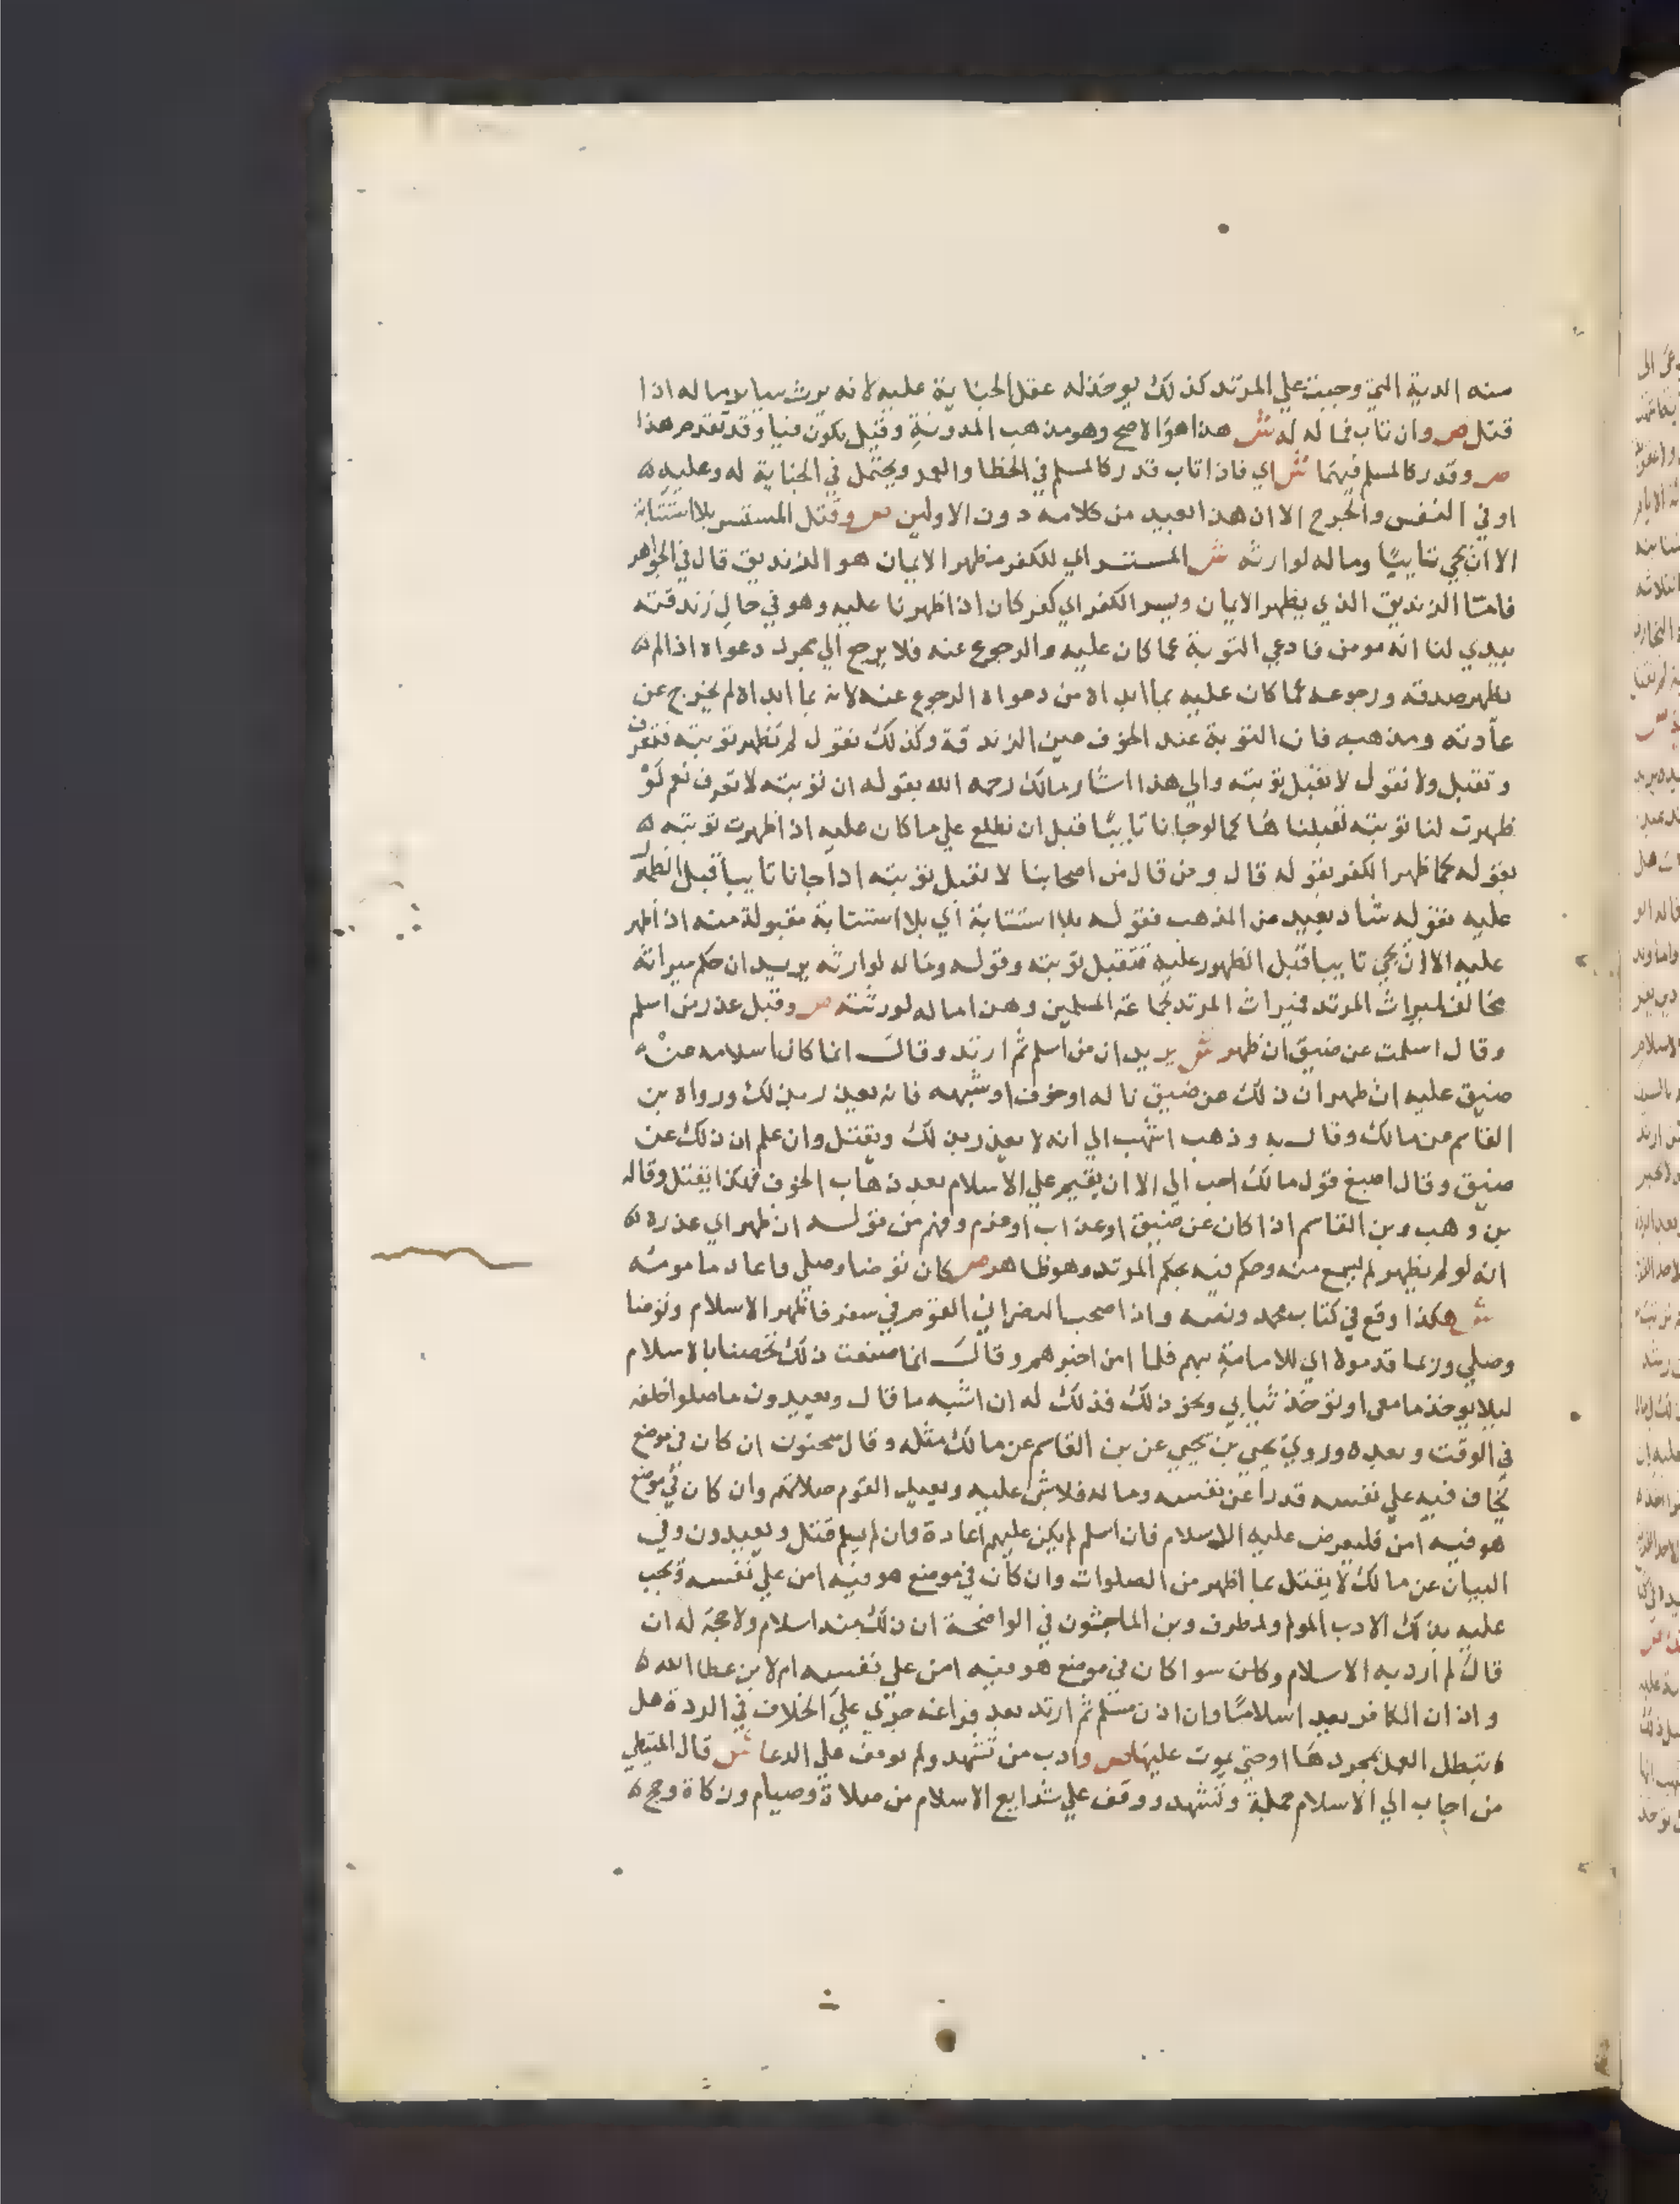 منه الدية التي وجبت علي المرتد كذلك يوخذ له عقل الجناية عليه لانه يرث ماله اذا
قتل ص وان تاب فماله له ش هذا هو الاصح وهو مذهب المدونة وقيل يكون فيا وقد تقدم هذا
ص وقدر كالمسلم فيهما ش اي فاذا تاب قدر كالمسلم في الخطا والعمد ويحتمل في الجناية له وعليه
او في النفس والجرح الا ان هذا بعيد من كلامه دون الاولين ص وقتل المستسر بلا استتابة
الا ان يجي تايبًا وماله لوارثه ش المستسر اي للكفر مظهر الايمان هو الزنديق قال في الجواهر
فامتا الزنديق الذي يظهر الايمان ويسر الكفر اي كفر كان اذا ظهرنا عليه وهو في حال زندقته
يبدي لنا انه مومن فادعي التوبة عما كان عليه والرجوع عنه فلا يرجع الي مجرد دعواه اذا لم
يظهر صدقه ورجوعه عما كان عليه بما ابداه من دعواه الرجوع عنه لانه بما ابداه لم يخرج عن
عادته ومذهبه فان التوبة عند الخوف عين الزندقة وكذلك نقول لم تظهر توبته فتعرف
وتقبل ولا نقول لا تقبل توبته والي هذا اشار مالك رحمه الله بقوله ان توبته لا تعرف نعم لو
ظهرت لنا توبته لقبلناها كما لو جانا تايبًا قبل ان نطلع علي ما كان عليه اذا ظهرت توبته
بقوله كما ظهر الكفر بقوله قال ومن قال من اصحابنا لا تقبل توبته اذا جانا تايبا قبل الظهور
عليه فقوله شاذ بعيد من المذهب فقوله بلا استتابة اي بلا استتابة مقبولة منه اذا ظهر
عليه الا ان يجي تايبا قبل الظهور عليه فتقبل توبته وقوله وماله لوارثه يريد ان حكم ميراثه
مخالف لميراث المرتد فميراث المرتد لجماعة المسلمين وهذا ماله لورثته ص وقبل عذر من اسلم
وقال اسلمت عن ضيق ان ظهر ش يريد ان من اسلم ثم ارتد وقال انما كان اسلامه عن
ضيق عليه ان ظهر ان ذلك عن ضيق ناله او خوف او شبهه فانه يعذر بذلك ورواه بن
القاسم عن مالك وقال به وذهب اشهب الي انه لا يعذر بذلك ويقتل وان علم ان ذلك عن
ضيق وقال اصبغ قول مالك احب الي الا ان يقيم علي الاسلام بعد ذهاب الخوف فهذا يقتل وقاله
بن وهب وبن القاسم اذا كان عن ضيق او عذاب او غرم وفهم من قوله ان ظهر اي عذره
انه لو لم يظهر لم يسمع منه وحكم فيه بحكم المرتد وهو ظاهر ص كان توضا وصلي واعاد مامومه
ش هكذا وقع في كتاب محمد ونصه واذا صحب النصراني القوم في سفر فاظهر الاسلام وتوضا
وصلي وربما قدموه اي للامامة بهم فلما امن اخبرهم وقال انما صنعت ذلك تحصنا بالاسلام
ليلا يوخذ ما معي او توخذ ثيابي ونحو ذلك فذلك له ان اشبه ما قال ويعيدون ما صلوا خلفه
في الوقت وبعده وروي يحيي بن يحيي عن بن القاسم عن مالك مثله وقال سحنون ان كان في موضع
يخاف فيه علي نفسه فدرا عن نفسه وماله فلا شي عليه ويعيد القوم صلاتهم وان كان في موضع
هو فيه امن فليعرض عليه الاسلام فان اسلم لم يكن عليهم اعادة وان لم يسلم قتل ويعيدون وفي
البيان عن مالك لا يقتل بما اظهر من الصلوات وان كان في موضع هو فيه امن علي نفسه ويجب
عليه بذلك الادب المولم ولمطرف وبن الماجشون في الواضحة ان ذلك منه اسلام ولا حجة له ان
قال لم ارد به الاسلام وكان سوا كان في موضع هو فيه امن علي نفسه ام لا بن عطا الله
واذان الكافر يعد اسلامًا وان اذن مسلم ثم ارتد بعد فراغه جري علي الخلاف في الردة هل
تبطل العمل بمجردها او حتي يموت عليها ص وادب من تشهد ولم يوقف علي الدعا ش قال المتيطي
من اجاب الي الاسلام جملة وتشهد ووقف علي شرايع الاسلام من صلاة وصيام وزكاة وحج